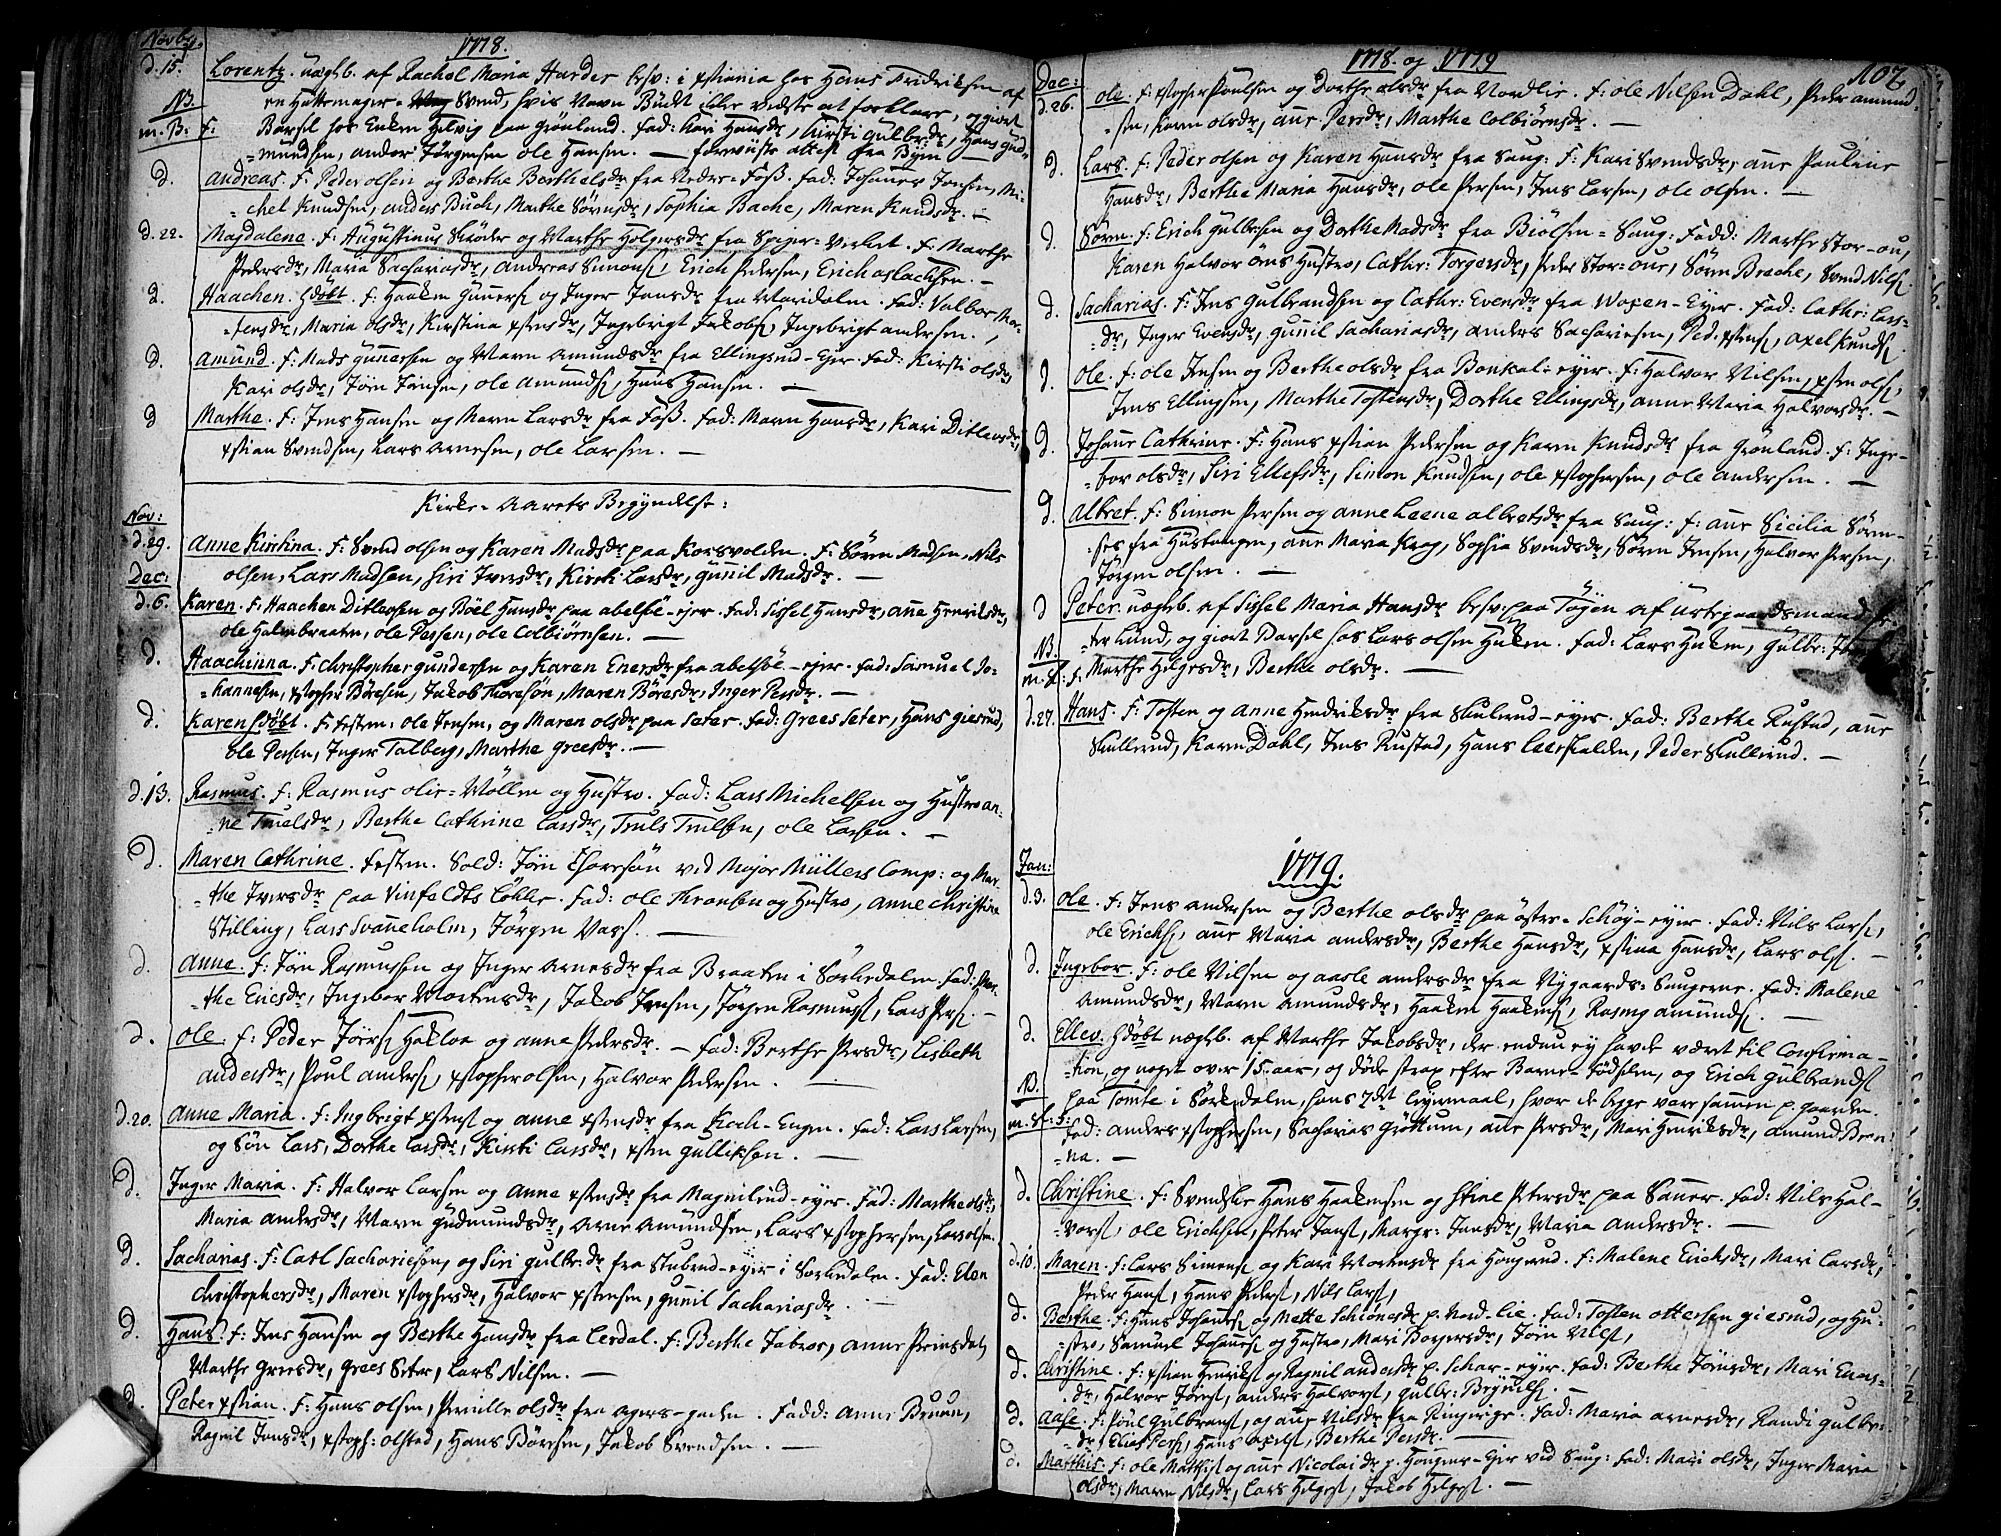 Novbr. 1778.
d. 15. Lorentz. uægteb. af Rachel Maria Harder besv: i xstiania hos Hans Fridriksen af
en Hattemager Svend, hvis Navn Bùdt eller vidste at forklare, og giort
NB. Barsel hos Enken Helvig paa Grønland. fad: Kari Hansdr, Kirsti Gulbrdr, Hans Gud-
=mundsen, Ander Jørgensen ole Hansen. — forevüste attest fra Byen —
d. Andreas. F: Peder olsen og Berthe Berthelsdr fra Nedre-Foss. fad: Johannes Jensen, Mi-
=chel Knudsen, anders Buch, Marthe Sørensdr, Sophia Bache, Maren Knudsdr. —
d. 22. Magdalene. F: Augustinus Skrøder og Marthe Holgersdr fra Spiger-Verket. F: Marthe
Pedersdr, Maria Sachariasdr, Andreas Simons, Erich Pedersen, Erich aslachsen. —
d. Haachen. hdøbt. F: Haaken Gunners og Inger Jensdr fra Maridalen. fad: Valbor Mor-
=tensdr, Maria olsdr, Kirstina xstensdr, Ingebrigt Jakobs, Ingebrigt andersen.
d. Amund. F: Mads Gunnersen og Maren Amundsdr fra Ellingsrud-Eyer. fad: Kirsti olsdr,
Kari olsdr, Jørn Jensen, ole Amunds, Hans Hansen. —
d Marthe. F: Jens Hansen og Maren Larsdr fra Foss. fad: Maren Hansdr, Kari Ditlevsdr,
xstian Svendsen, Lars Arnesen, ole Larsen. —
Kirke-Aarets Begyndelse:
Nov:
d. 29. Anne Kirstina. F: Svend olsen og Karen Madsdr paa Korsvolden. F: Sören Madsen, Nils
olsen, Lars Madsen, Siri Iversdr, Kirsti Larsdr, Gunnil Madsdr. —
Dec:
d. 6. Karen. F: Haachen Ditlevsen og Böel Hansdr paa abelsöe-ejer. fad: Sissel Hansdr, anne Henriksdr,
ole Holmbraaten, ole Persen, ole Colbiörnsen. —
d. Haachinna. F: Christopher Gundersen og Karen Enersdr fra abelsöe-ejer. fad: Samuel Jo-
=hannesen, xstopher Böresen, Jakob Thoresön, Maren Böresdr, Inger Persdr. —
d. Karen hdøbt. F: festem: ole Jensen, og Maren olsdr paa Seter. fad: Grees Seter, Hans giesrud,
ole Persen, Inger Talberg, Marthe Greesdr. —
d. 13. Rasmus. F: Rasmus olie-Möllen og Hustro. fad: Lars Michelsen og Hustro an-
=ne Truelsdr, Berthe Cathrine Larsdr, Truls Trulsen, ole Larsen. —
d. Maren Cathrine. festem. Sold: Jörn Thoresön ved Major Müllers Comp: og Mar-
=the Iversdr paa Vinfeldts Lökke. fad: ole Thronsen og Hustro, Anne Christine
Stilling, Lars Svaneholm, Jörgen Vars. —
d. Anne. F: Jörn Rasmussen og Inger Arnesdr fra Braaten i Sörkedalen. fad: Mar-
=the Ericsdr, Ingebor Mortensdr, Jakob Jensen, Jörgen Rasmuss, Lars Pers. —
d. Ole. F: Peder Jörs Hakloe og Anne Pedersdr. — fad: Berthe Persdr, Lisbeth
Andersdr, Poul Anders, xstopher olsen, Halvor Pedersen. —
d. 20. Anne Maria. F: Ingbrigt xstens og anne xstensdr fra Koch-Engen. fad: Lars Larsen,
og Sön Lars, Dorthe Larsdr, Kirsti Larsdr, xsten Gulliksen. —
d. Inger Maria. F: Halvor Larsen og Anne xstensdr fra Magnilrud-eyer. fad: Marthe olsdr,
Maria Andersdr, Maren Gudmundsdr, Arne Amundsen, Lars xstophersen, Lars olsen.
d. Sacharias. F: Carl Sachariesen, og Siri Gulbr:dr fra Stubrud-eyer i Sörkedalen. fad: Elen
Christophersdr, Maren xstophersdr, Halvor xstensen, Gunnil Sachariasdr. —
d. Hans. F: Jens Hansen og Berthe Hansdr fra Lerdal. F: Berthe Jabroe, Anne Prinsdal,
Marthe Greesdr, Grees Seter, Lars Nilsen. —
d. Peter xstian. F: Hans olsen, Pernille olsdr fra agers-gaden. Fadd: Anne Bruun,
Ragnil Jensdr, xstoph: olstad, Hans Böresen, Jakob Svendsen. —
1778. og 1779 107.
Dec:
d. 26. Ole. F: xstopher Poulsen og Dorthe olsdr fra Nordlie. F: ole Nilsen Dahl, Peder amund-
=sen, Karen olsdr, anne Persdr, Marthe Colbiörnsdr. —
d. Lars. F: Peder olsen og Karen Hansdr fra Saug: F: Kari Svendsdr, anne Pauline
Hansdr, Berthe Maria Hansdr, ole Persen, Jens Larsen, ole olsen. —
d. Sören. F: Erich Gulbrsen og Dorthe Madsdr fra Biölsen-Saug: Fadd: Marthe Stor-oen,
Karen Halvor öens Hustro, Cathr: Torgersdr, Peder Stor-oen, Sören Breche, Svend Nils
d. Sacharias. F: Jens Gulbrandsen og Cathr: Evensdr fra Woxen-Eyer. fad: Cathr: Lars-
=dr, Inger Evensdr, Gunnil Sachariasdr, Anders Sachariesen, Ped. xstens, Axel Knuds
d. Ole. F: ole Jensen og Berthe olsdr fra Bonkal-eyer. F: Halvor Nilsen, xsten ols,
Jens Ellingsen, Marthe Tostensdr, Dorthe Ellingsdr, Anne Maria Halvorsdr. —
d. Johanne Cathrine. F: Hans xstian Pedersen og Karen Knudsdr fra Grønland. F: Inge-
=bor olsdr, Siri Ellefsdr, Simon Knudsen, ole xstophersen, ole Andersen. —
d. Albret. F: Simon Persen og Anne Leene Albretsdr fra Saug: F: Anne Sicilia Sören-
=ses fra Hustangen, anne Maria Krag, Sophia Svendsdr, Sören Jensen, Halvor Persen,
Jörgen olsen. —
d Peter. uægteb. af Sissel Maria Hansdr besv: paa Töyen af Urtegaardsmand Pe-
NB. =ter Lund, og giort Barsel hos Lars olsen Huken. fad: Lars Huken, Gulbr:
Marthe Helgesdr, Berthe olsdr. —
d. 27. Hans. F: Tosten og Anne Hendriksdr fra Skulerud-eyer. fad: Berthe Rustad, anne
Skullerud, Karen Dahl, Jens Rustad, Hans Leerskalden, Peder Skullerud. —
1779.
Jan:
d. 3. Ole. F: Jens Andersen og Berthe olsdr paa öster-Schöy-eyer. fad: Nils Lars,
ole Erichs, anne Maria Andersdr, Berthe Hansdr, xstina Hansdr, Lars ols. —
d. Ingebor. F: ole Nilsen og aasle Andersdr fra Nygaards-Saugene. fad: Malene
Amundsdr, Maren Amundsdr, Haaken Haakens, Rasmg Amunds. —
d. Ellev. hdøbt uægteb. af Marthe Jakobsdr, der endnu ey havde været til Confirma-
NB. =tion, og noget over 15 aar, og døde strax efter Barne-Fødselen, og Erich Gulbrands
paa Tomte i Sörkedalen, hans 7det Leyermaal, hvor de begge vare sammen p. gaarden.
Fad: Anders xstophersen, Sacharias Gröttum, anne Persdr, Mari Henriksdr, Amund Bren-
=na. —
d. Christine. F: Svenske Hans Haakensen og Stine Petersdr paa Saner. fad: Nils Hal-
=vors, ole Erichsen, Peter Jans, Margr: Jensdr, Maria Andersdr. —
d. 10. Maren. F: Lars Simens og Kari Mortensdr fra Haugerud. F: Malene Erichsdr, Mari Larsdr,
Peder Hans, Hans Peders, Nils Lars,
d. Berthe. F: Hans Johannes og Mette Schönesdr p. Nord-Lie. fad: Tosten ottersen giesrud, og Hu-
=stro, Samuel Johannes og Hustro, Mari Borgersdr, Jörn Nils,
d. Christine. F: xstian Henriks og Ragnil Andersdr p. Schar-eyer. fad: Berthe Jörnsdr, Mari Eners-
=dr, Halvor Jörns, Anders Halvors, Gulbr: Brynils. —
d. Aase. F: Poul Gulbrans, og anne Nilsdr fra Ringerige. fad: Maria Arnesdr, Randi Gulbr:
=dr, Elias Pers, Hans Axels, Berthe Persdr. —
d. Matthis. F: ole Matthis og anne Nicolaidr p. Hougene-Eyer ved Saug: fad: Mari olsdr, Inger Maria
olsdr, Maren Nilsdr, Lars Helges, Jakob Helges. —